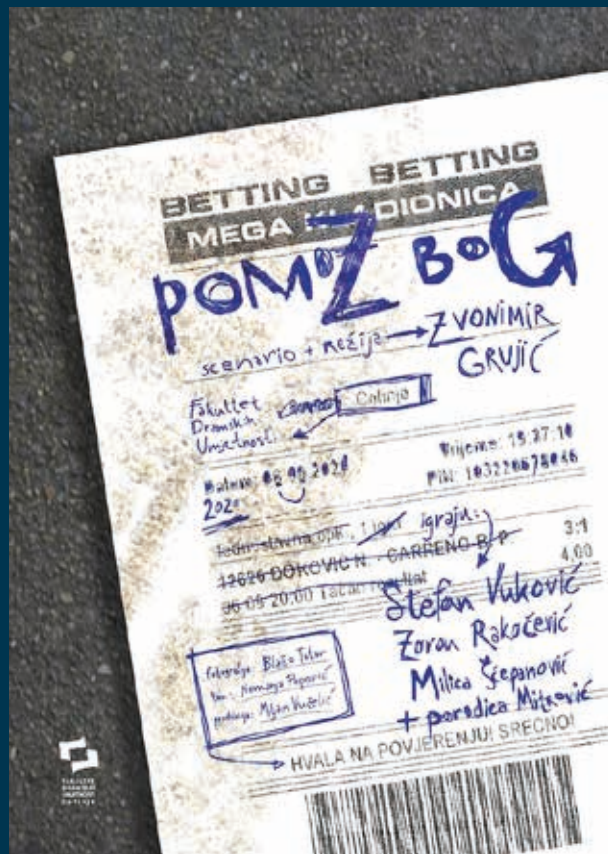 BETTING BETTING
MEGA KLADIONICA
POMOZ BOG
scenario + režija → ZVONIMIR
GRUJIĆ
Fakultet
Dramskih
Umjetnosti
Cetinje
06 09 2020
Vrijeme: 19:27:10
2020
PIN: 103220678046
igraju:
12626 DOKOVIC N. - CARRENO B. P
3:1
06 09 20:00 Tačan rezultat
4,00
Stefan Vuković
Zoran Rakočević
Milica Šćepanović
+ porodica Mitrović
fotografija: Blažo Tatar
ton: Nemanja Popović
montaža:
HVALA NA POVJERENJU! SREĆNO!
FAKULTET
DRAMSKIH
UMJETNOSTI
Cetinje